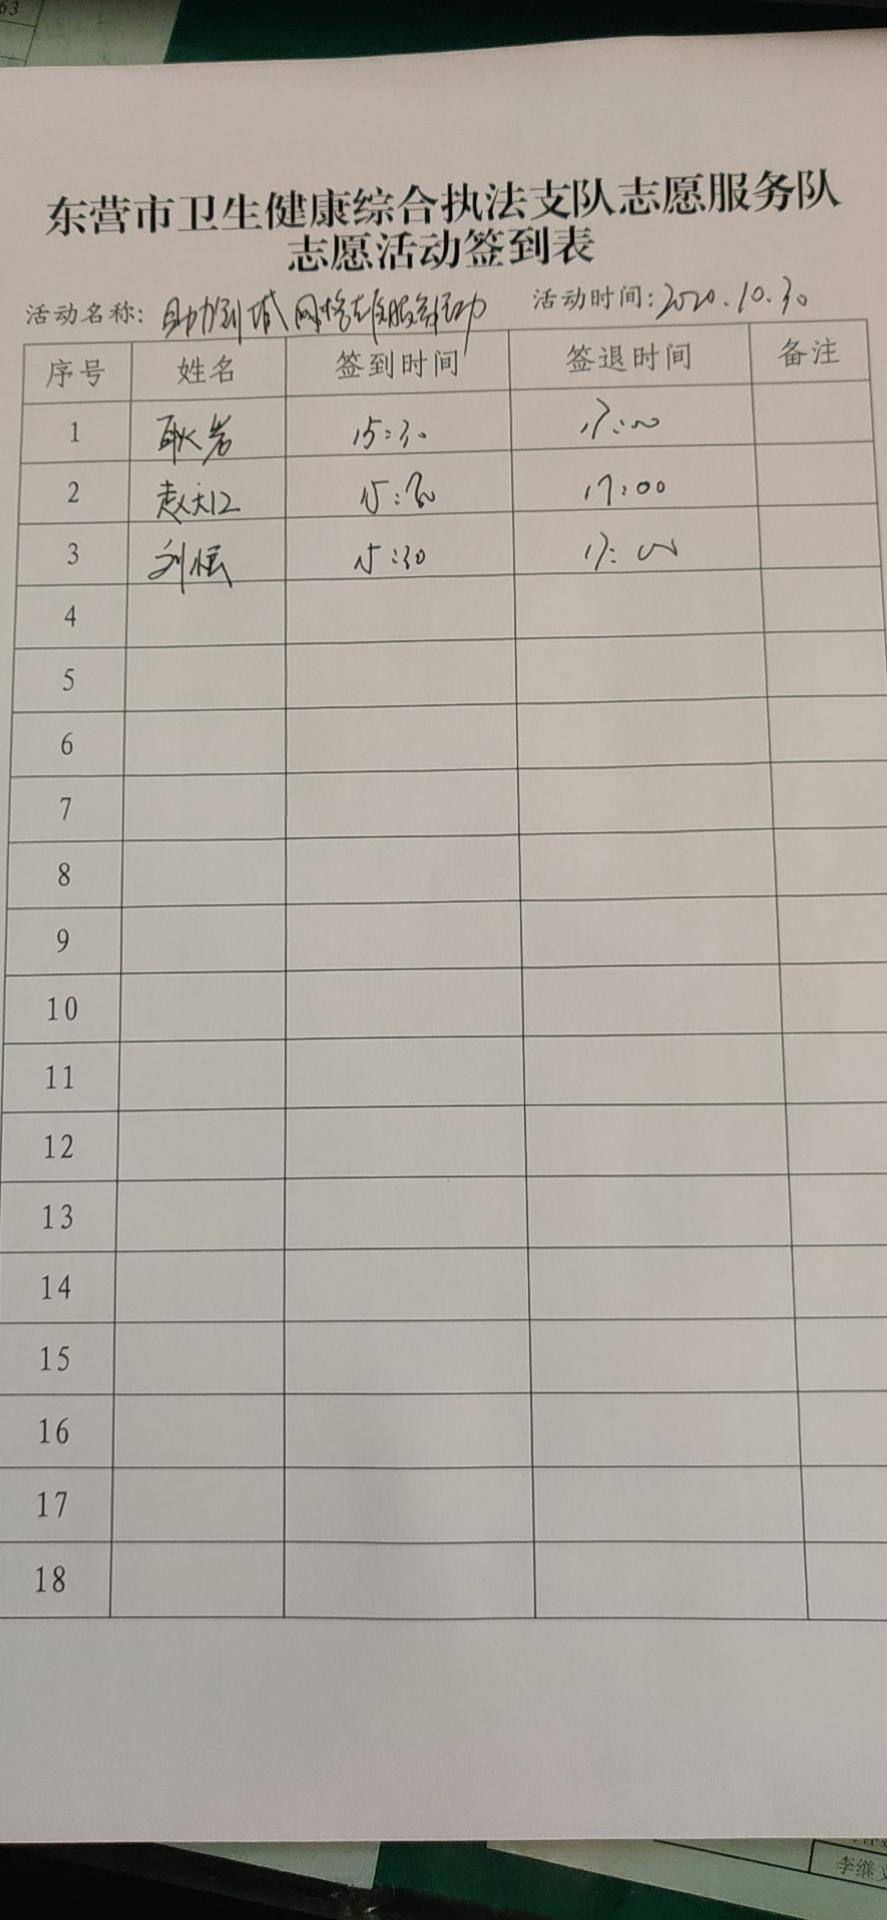 63
东营市卫生健康综合执法支队志愿服务队
志愿活动签到表
活动名称: 助力创城 网格志愿服务活动 活动时间: 2020.10.30
序号 姓名 签到时间 签退时间 备注
1 耿岩 15:30 17:00
2 赵 15:30 17:00
3 刘 15:30 17:00
4
5
6
7
8
9
10
11
12
13
14
15
16
17
18
李继